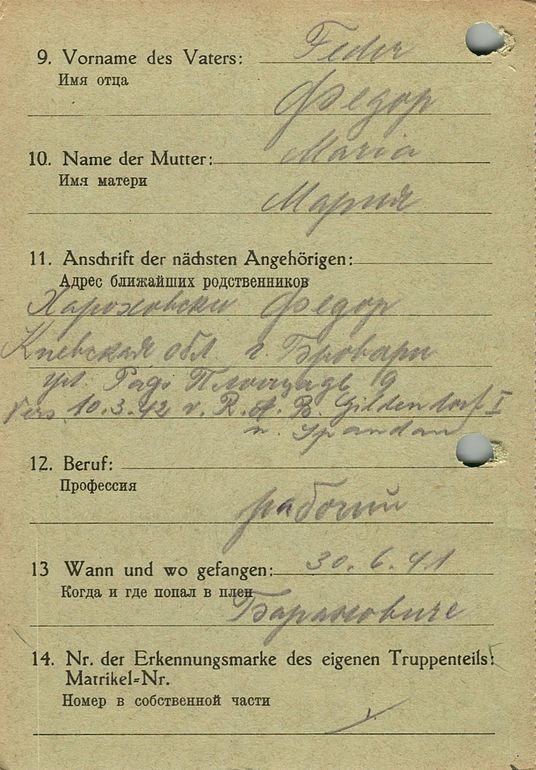 9. Vorname des Vaters: Fedir
Имя отца
Федор
10. Name der Mutter: Maria
Имя матери
Мария
11. Anschrift der nächsten Angehörigen:
Адрес ближайших родственников
Федор
Киевская обл г. Бровари
ул. Рад. Площадь 9
Vers. 10.3.42 v. R. A. B. Gildendorf I
n. Spandau
12. Beruf:
Профессия
рабочий
13 Wann und wo gefangen: 30. 6. 41
Когда и где попал в плен
Барановиче
14. Nr. der Erkennungsmarke des eigenen Truppenteils:
Matrikel-Nr.
Номер в собственной части